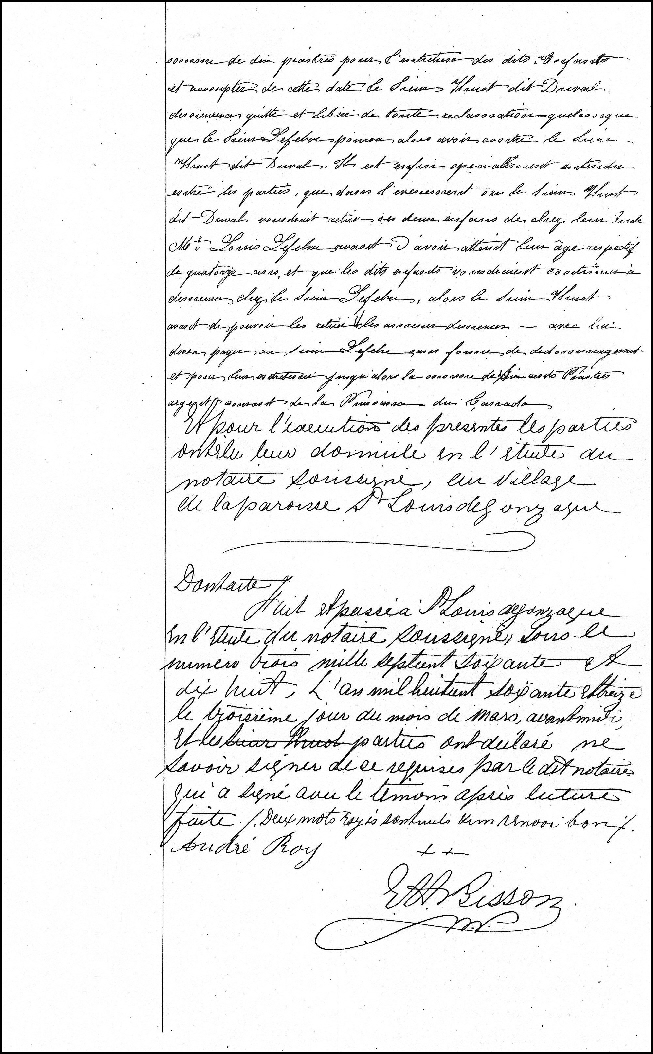 somme de dix piastres pour l'entretien des dits Enfants
et a compter de cette date le Sieur Huot dit Duval
demeurera quitte et libéré de toute réclamation quelconque
que le Sieur Lefebvre pourra alors avoir contre le Sieur
Huot dit Duval. Il est enfin spécialement entendu
entre les parties, que dans l'événement où le Sieur Huot
dit Duval voudrait retirer ses deux enfants de chez leur
Mr. Louis Lefebvre avant d'avoir atteint leur âge respectif
de quatorze ans, et que les dits enfants voudraient continuer à
demeurer chez le Sieur Lefebvre, alors le Sieur Huot
avant de pouvoir les retirer & les amener demeurer avec lui
devra payer au Sieur Lefebvre par forme de dédommagement
et pour leur entretien jusqu'alors la somme de Piastres
argent courant de la Puissance du Canada
Et pour l'exécution des présentes les parties
ont élu leur domicile en l'étude du
notaire soussigné, au village
de la paroisse St Louis de Gonzague
Dont acte //
Fait et passé à St Louis de Gonzague
En l'étude du notaire soussigné, sous le
numéro trois mille sept cent soixante et
dix huit, L'an mil huit cent soixante et treize
le troisième jour du mois de mars, avant midi,
Et les Sieur Huot parties ont déclaré ne
savoir signer de ce requises par le dit notaire
qui a signé avec le témoin après lecture
faite /. Deux mots rayés sont nuls & un renvoi bon /.
André Roy + +
Bisson